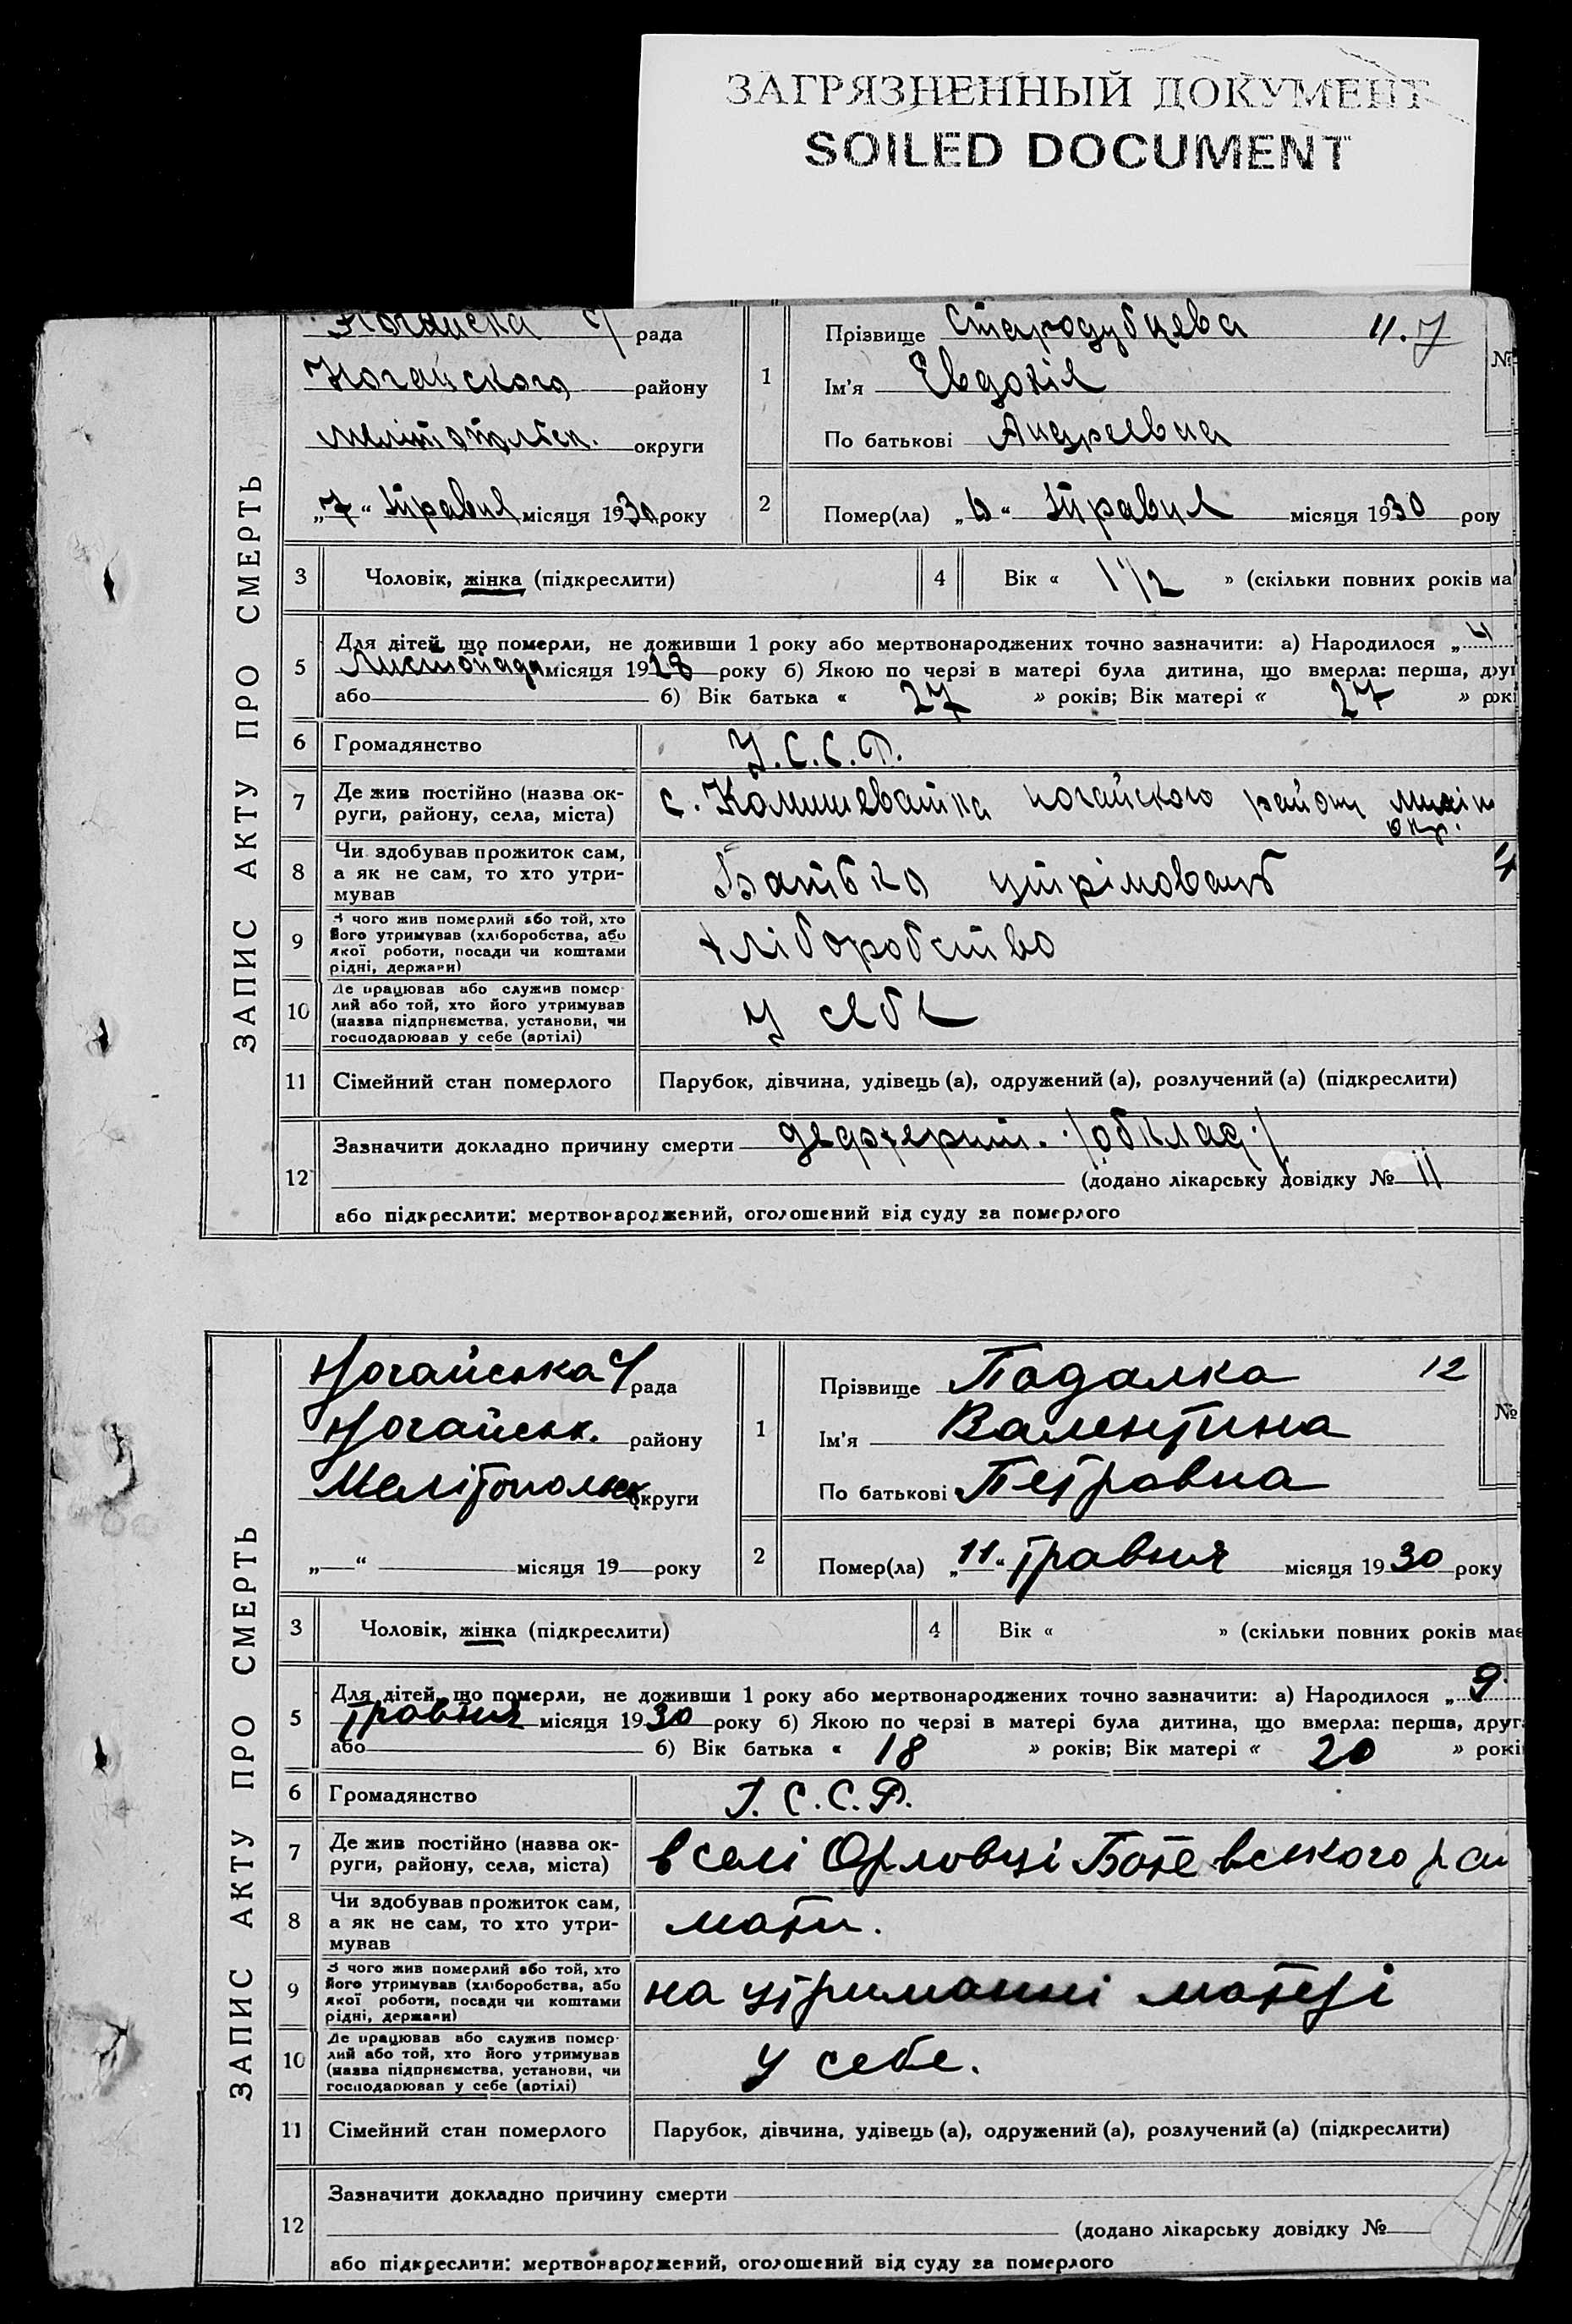 ЗАГРЯЗНЕННЫЙ ДОКУМЕНТ
SOILED DOCUMENT
ЗАПИС АКТУ ПРО СМЕРТЬ
рада
Ногайского району
округи
„7“ травня місяця 1930 року
1
Прізвище Стародубцева 11.
Ім'я Евдокія
По батькові Андреевна
№
2
Помер(ла) травня місяця 1930 року
3 Чоловік, жінка (підкреслити)
4 Вік « 1 1/2 » (скільки повних років ма
5
Для дітей, що померли, не доживши 1 року або мертвонароджених точно зазначити: а) Народилося „
Листопада місяця 1928 року б) Якою по черзі в матері була дитина, що вмерла: перша, друг
або б) Вік батька « 27 » років; Вік матері « 27 » рокі
6 Громадянство У.С.С.Р.
7
Де жив постійно (назва ок-
руги, району, села, міста)
с. Комишеватка ногайского району
окр.
8
Чи здобував прожиток сам,
а як не сам, то хто утри-
мував
Батько
9
З чого жив померлий або той, хто
його утримував (хліборобства, або
якої роботи, посади чи коштами
рідні, держави)
хліборобство
10
Де працював або служив помер-
лий або той, хто його утримував
(назва підприємства, установи, чи
господарював у себе (артілі)
у себе
11 Сімейний стан померлого
Парубок, дівчина, удівець (а), одружений (а), розлучений (а) (підкреслити)
12
Зазначити докладно причину смерти
(додано лікарську довідку № 11
або підкреслити: мертвонароджений, оголошений від суду за померлого
ЗАПИС АКТУ ПРО СМЕРТЬ
Ногайська с/рада
Ногайськ. району
Мелітопольск округи
„ “ місяця 19 року
1
Прізвище Подалка 12
Ім'я Валентина
По батькові Петровна
№
2
Помер(ла) „11“ травня місяця 1930 року
3 Чоловік, жінка (підкреслити)
4 Вік « » (скільки повних років має
5
Для дітей, що померли, не доживши 1 року або мертвонароджених точно зазначити: а) Народилося „9
травня місяця 1930 року б) Якою по черзі в матері була дитина, що вмерла: перша, друг
або б) Вік батька « 18 » років; Вік матері « 20 » рокі
6 Громадянство У.С.С.Р.
7
Де жив постійно (назва ок-
руги, району, села, міста)
в селі Орловці
8
Чи здобував прожиток сам,
а як не сам, то хто утри-
мував
мати.
9
З чого жив померлий або той, хто
його утримував (хліборобства, або
якої роботи, посади чи коштами
рідні, держави)
на утриманні матері
10
Де працював або служив помер-
лий або той, хто його утримував
(назва підприємства, установи, чи
господарював у себе (артілі)
у себе.
11 Сімейний стан померлого
Парубок, дівчина, удівець (а), одружений (а), розлучений (а) (підкреслити)
12
Зазначити докладно причину смерти
(додано лікарську довідку №
або підкреслити: мертвонароджений, оголошений від суду за померлого